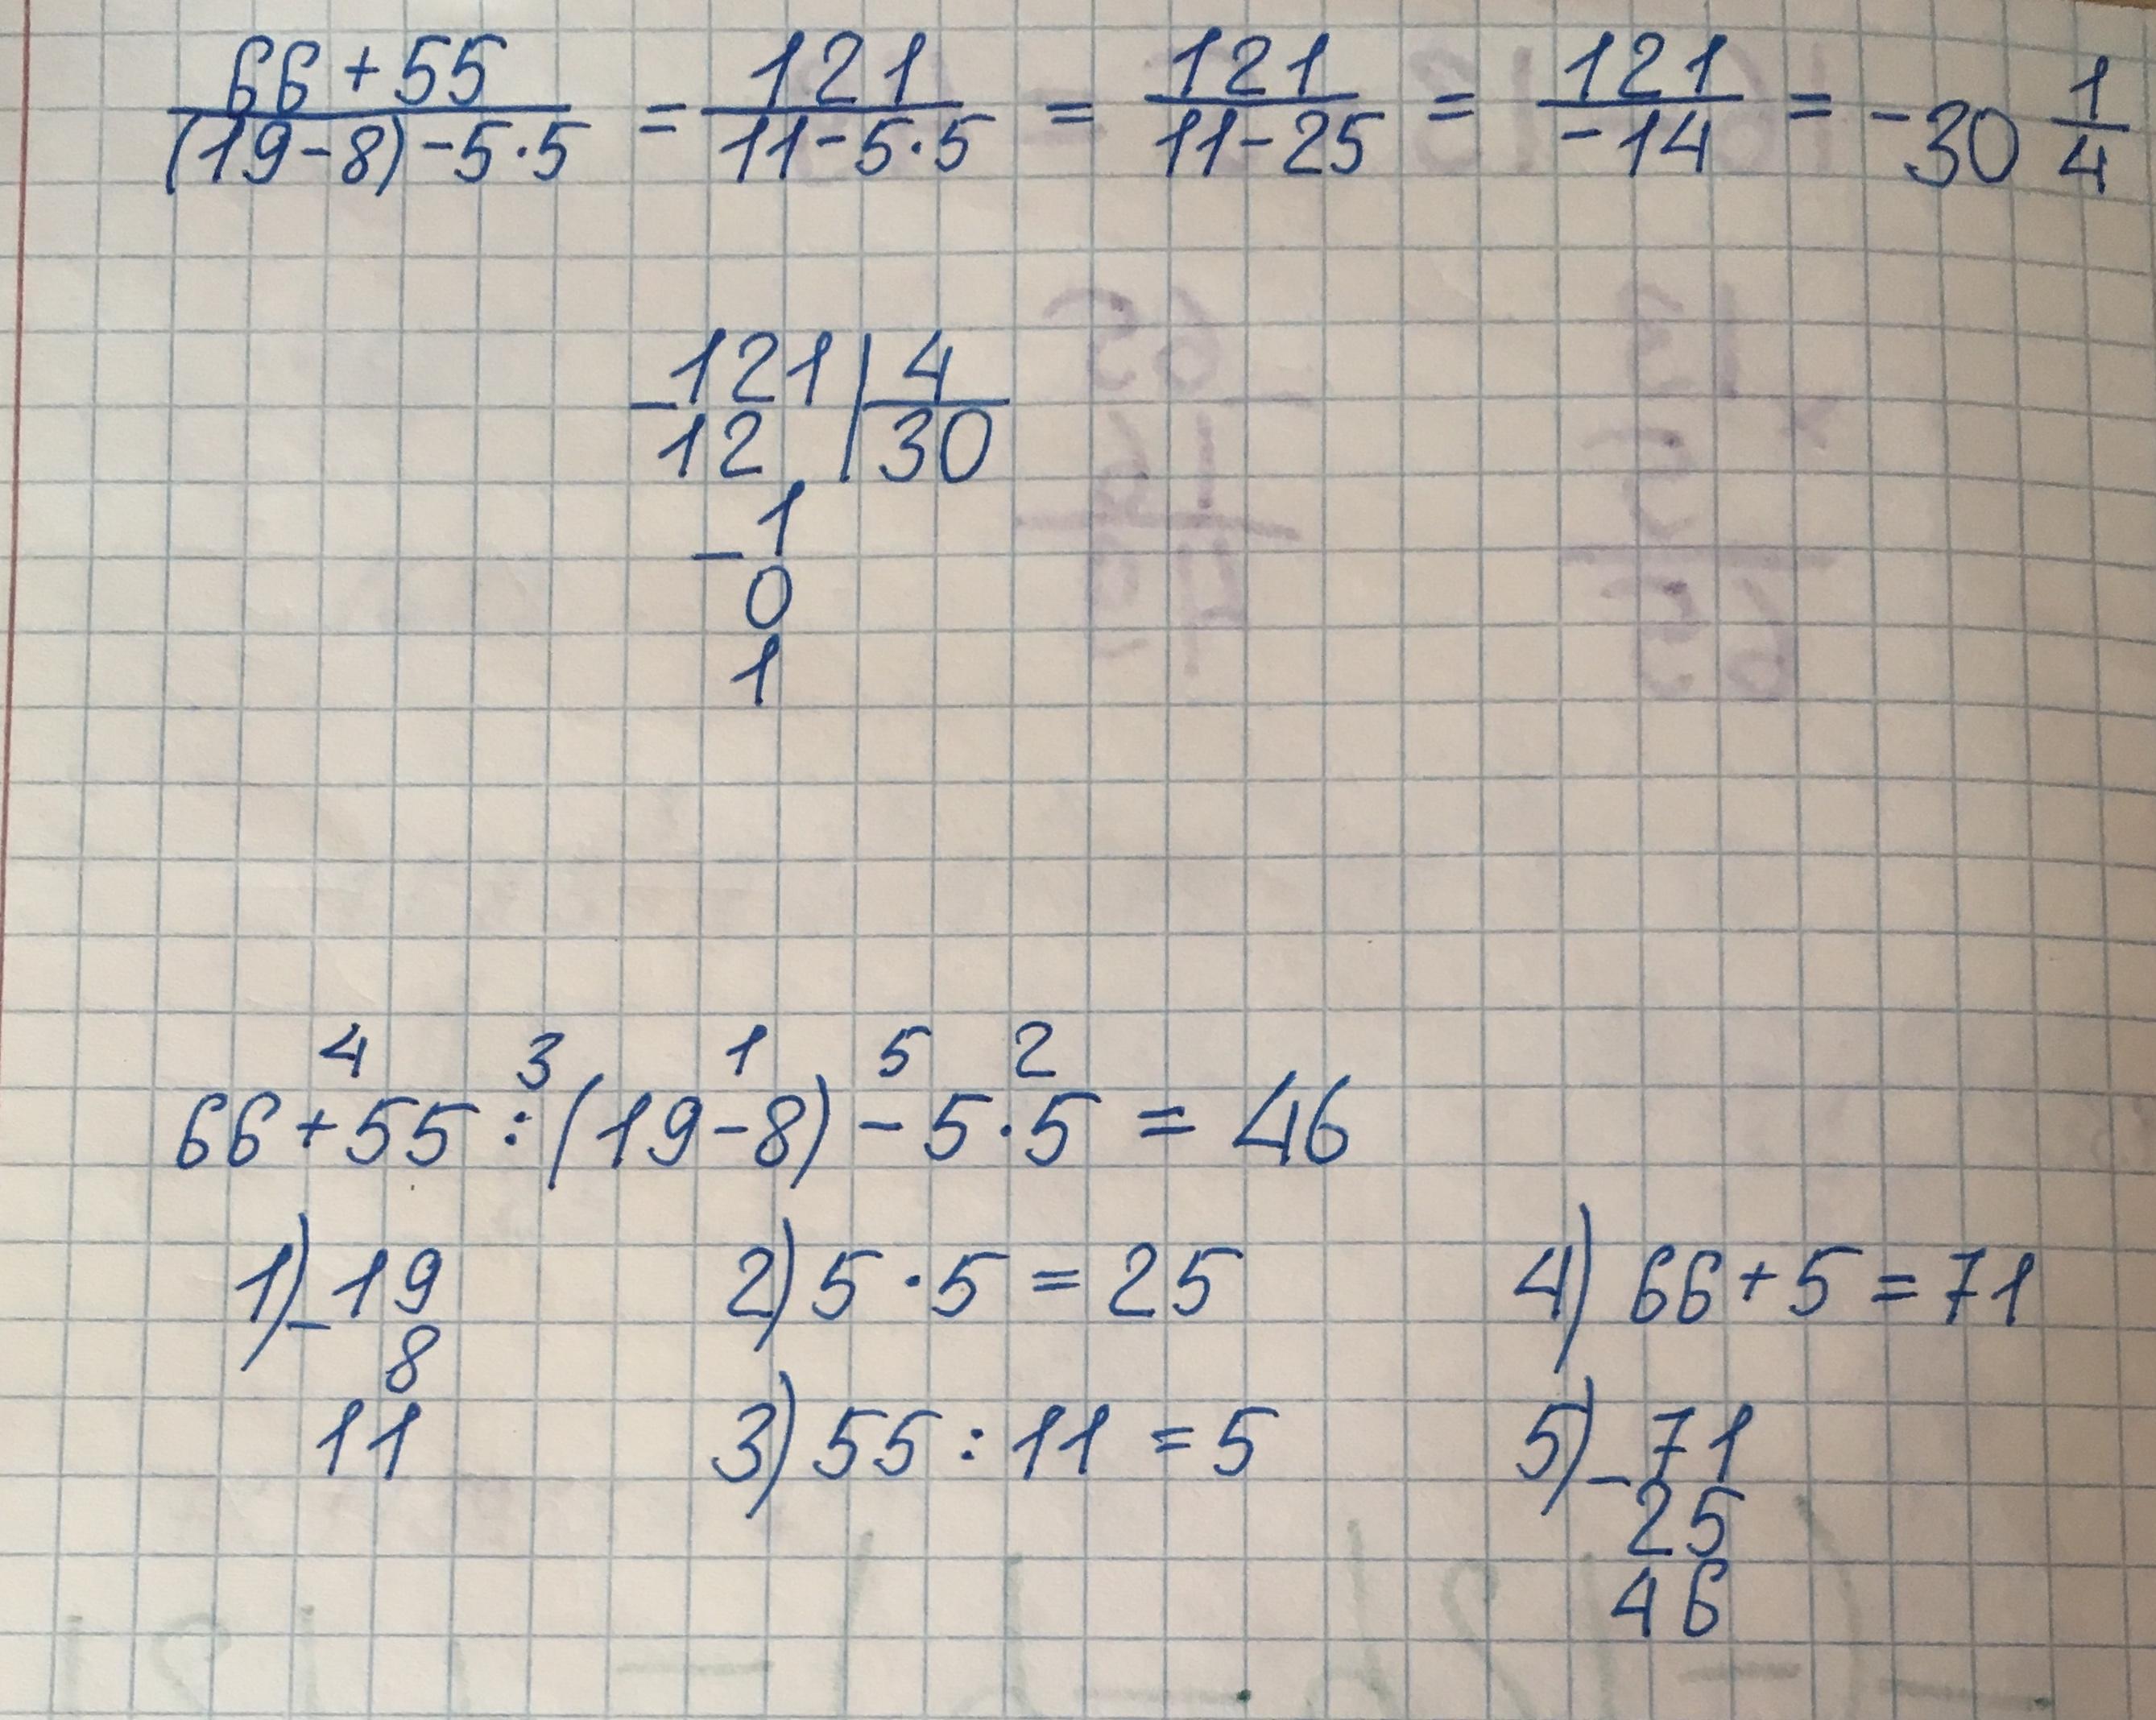 66+55/(19-8)-5·5 = 121/11-5·5 = 121/11-25 = 121/-14 = -30 1/4
-121 | 4
12 | 30
-1
0
1
4 3 1 5 2
66+55:(19-8)-5·5=46
1) -19
8
11
2) 5·5=25
3) 55:11=5
4) 66+5=71
5) -71
25
46